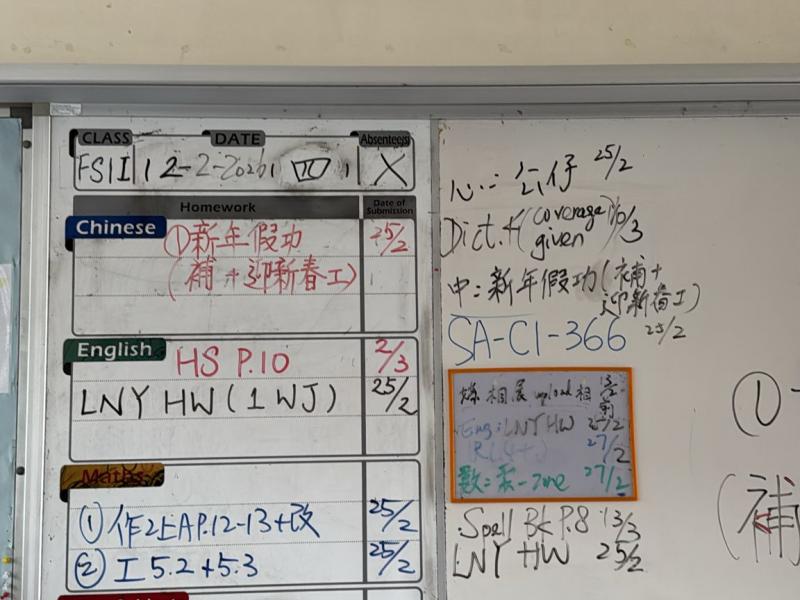 CLASS DATE Absentee(s)
12-2-2026 四 X
Homework Date of Submission
Chinese ①新年假功 25/2
(補+迎新春工)
English HS P.10 2/3
LNY HW (1 WJ) 25/2
Maths
①作2上A P.12-13+改 25/2
②工5.2+5.3 25/2
25/2
Dict.4 (coverage given) 3
中:新年假功(補+
迎新春工) 25/2
SA-C1-366
相展 upload 相
Eng: LNY HW 25/2
27/2
數: 27/2
Spell Bk P.8 13/3
LNY HW 25/2
①
(補